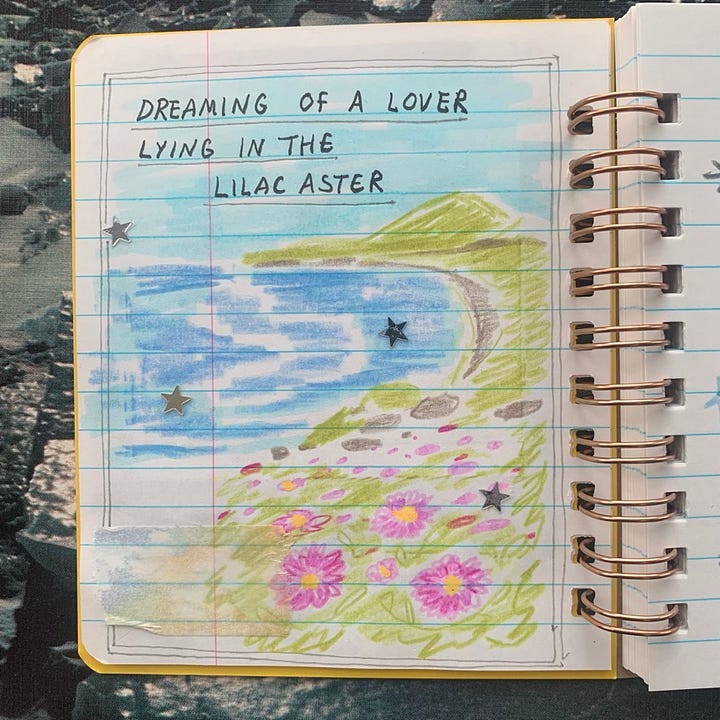 DREAMING OF A LOVER
LYING IN THE
LILAC ASTER